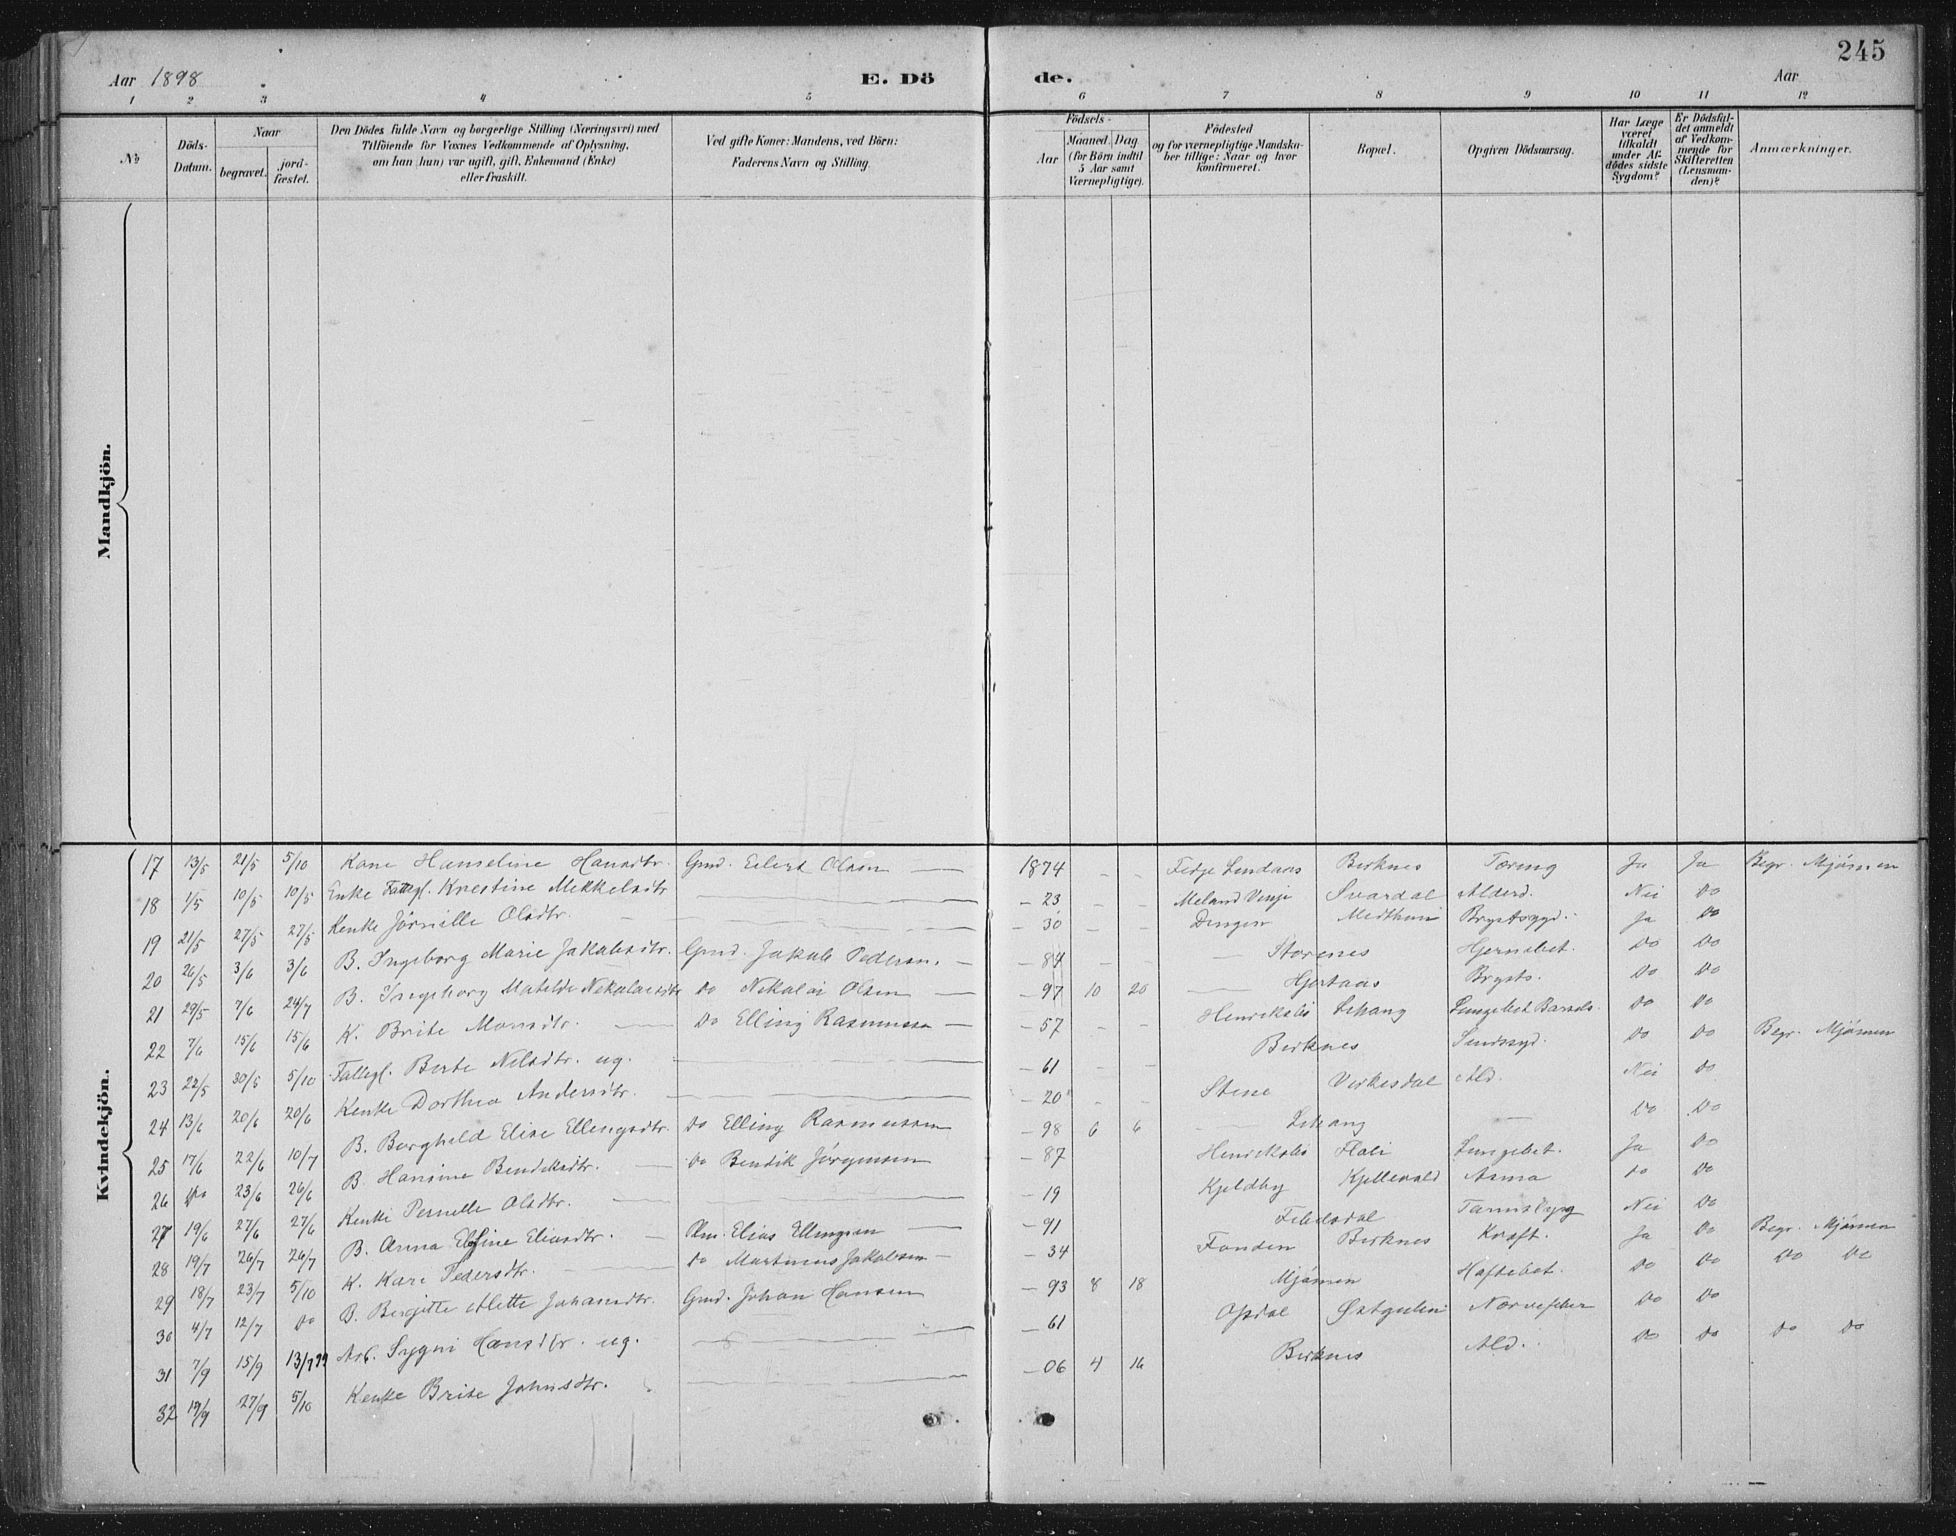 245
Aar 1898 E. Dö de. Aar
1 2 3 4 5 6 7 8 9 10 11 12
No
Döds-Datum.
Naar
begravet. jord-fæstet.
Den Dödes fulde Navn og borgerlige Stilling (Næringsvei) med
Tilföiende for Voxnes Vedkommende af Oplysning,
om han (hun) var ugift, gift, Enkemand (Enke)
eller fraskilt.
Ved gifte Koner: Mandens, ved Börn:
Faderens Navn og Stilling.
Födsels-
Aar Maaned. Dag
(for Börn indtil
5 Aar samt
Værnepligtige).
Födested
og for værnepligtige Mandska-
ber tillige: Naar og hvor
konfirmeret.
Bopæl.
Opgiven Dödsaarsag.
Har Læge
været
tilkaldt
under Af-
dödes sidste
Sygdom?
Er Dödsfal-
det anmeldt
af Vedkom-
mende for
Skifteretten
(Lensman-
den)?
Anmærkninger.
Mandkjön.
Kvindekjön.
17 13/5 21/5 5/10 Kone Hanseline Hansdtr. Gmd. Eilert Olsen 1874 - - Fedje Lindaas Birknes Tæring Ja Ja Begr. Mjömen
18 1/5 10/5 10/5 Enke Fattegl. Kristine Mikkelsdtr - 23 - - Meland Vinje Svardal Alderd. Nei Do
19 21/5 27/5 27/5 Kenke Jörnille Olsdtr. - 30 - - Dingen Medthun Brystsygd. Ja Do
20 26/5 3/6 3/6 B. Ingeborg Marie Jakobsdtr. Gmd. Jakob Pedersen - 84 - Storenes Hjernebet. Do Do
21 29/5 7/6 24/7 B. Ingeborg Matilde Nikolaisdtr Do Nikolai Olsen - 97 10 20 Hjortaas Brysts. Do Do
22 7/6 15/6 15/6 K. Brite Monsdtr. Do Elling Rasmussen - 57 - - Henriksbö Lihang Lungebet. Barsels. Do Do
23 22/5 30/5 5/10 Fattegl. Berte Nilsdtr. ug. - 61 - - Birknes Sindssyd. Do Do Begr. Mjömen
24 13/6 20/6 20/6 Kenke Dorthea Andersdtr. - 20 - - Stene Virkesdal Ald. Nei Do
25 17/6 22/6 10/7 B. Borghild Elise Ellingsdtr. Do Elling Rasmussen - 98 6 6 Lihang Do Do
26 Do 23/6 26/6 B. Hansine Bendiksdtr. Do Bendik Jørgensen - 87 Henriksbö Floli Lungebet. Ja Do
27 19/6 27/6 27/6 Kenke Pernille Olsdtr. - 19 Kjeldby Kjellevold Asma Do Do
28 19/7 26/7 26/7 B. Anna Elsine Eliasdtr. Plm. Elias Ellingsen - 91 Nei Do
29 18/7 23/7 5/10 K. Kari Pedersdtr. Do Martinus Jakobsen - 34 Fonden Birknes Kræft. Ja Do Begr. Mjömen
30 4/7 12/7 Do B. Birgitte Alette Johansdtr. Gmd. Johan Hansen - 93 8 18 Mjömen Hoftebet. Do Do Do Do
31 7/9 15/9 13/7 99 Arb. Sygni Hansdtr. ug. - 61 Opdal Østgulen Nervefeber Do Do
32 19/9 27/9 5/10 Kenke Brite Johnsdtr. - 06 4 16 Birknes Ald. Do Do Do Do